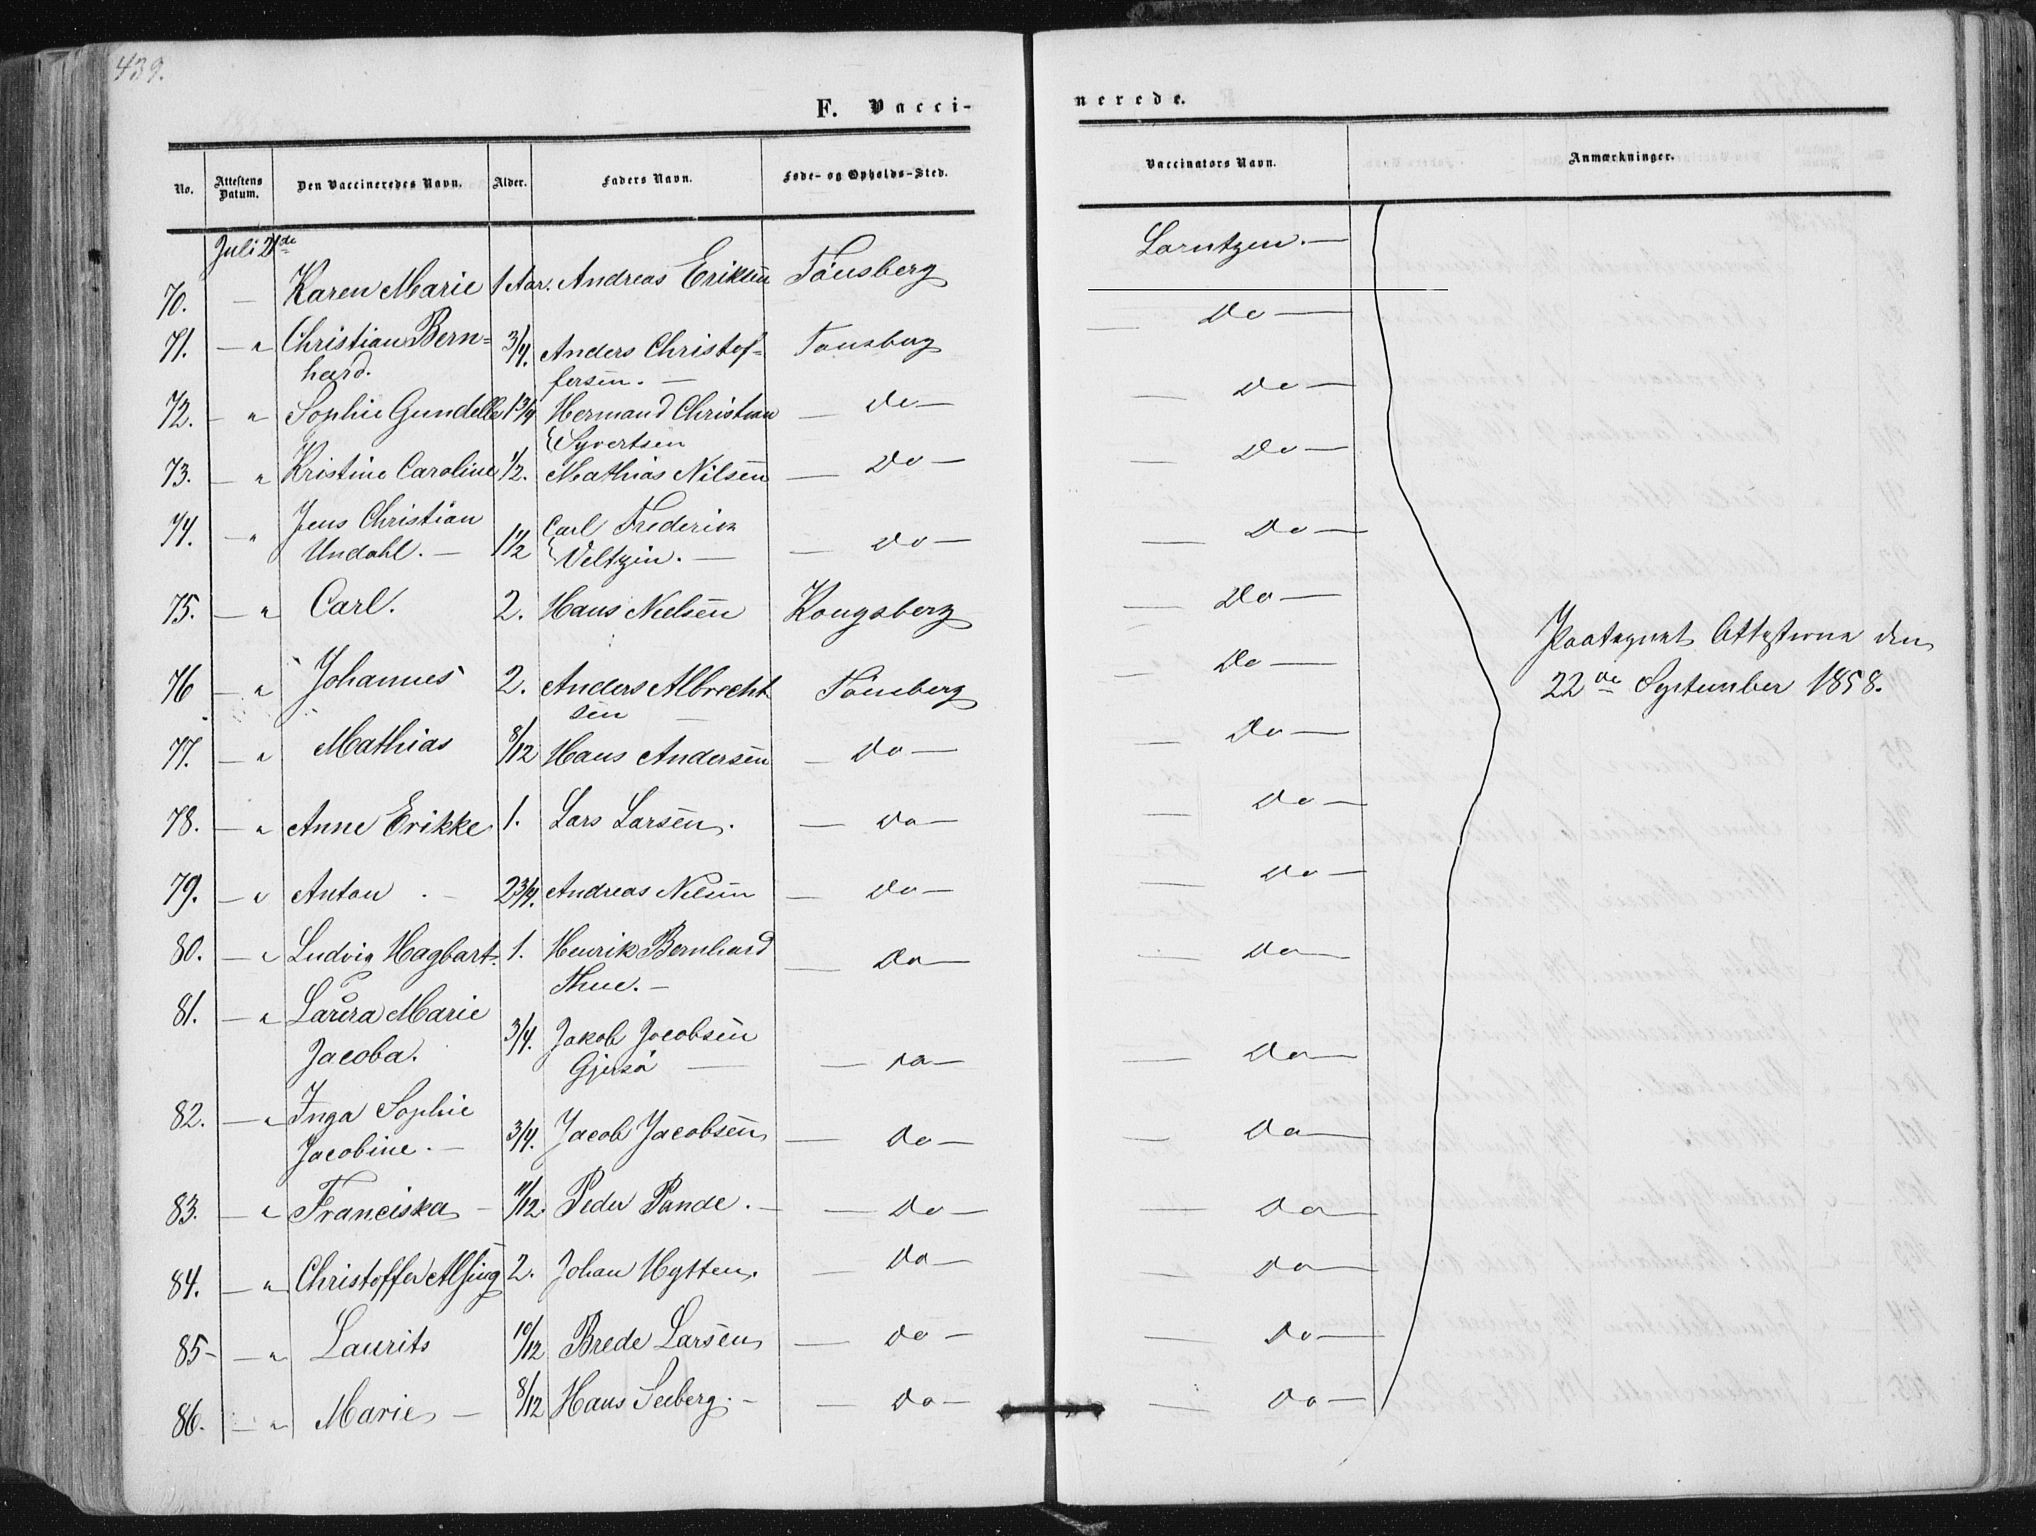 439.
F. Vacci-
nerede.
No. Attestens Datum. Den Vaccineredes Navn. Alder. Faders Navn. Føde- og Opholds-Sted. Vaccinators Navn. Anmærkninger.
Juli 21de
70. — Karen Marie 1 Aar. Andreas Eriksen Tönsberg Lorntzen. —
71. — " Christian Bern= 3/4. Anders Christof= Tønsberg — Do —
hard. fersen. —
72. — " Sophie Gundelle 1 3/4 Hermand Christian — do — — Do —
Syvertsen
73. — " Kristine Caroline 1/2. Mathias Nilsen — Do — — Do —
74. — " Jens Christian Carl Frederik
Undahl. — 1 1/2 Veltzin. — — Do — — Do —
75. — " Carl. 2. Hans Nielsen Kongsberg — Do —
76 — " Johannes 2. Anders Albrecht Tönsberg — Do —
sen —
Attesterne den
22de September 1858.
77. — " Mathias 8/12 Hans Andersen — Do — — Do —
78. — " Anne Erikke 1. Lars Larsen. — Do — — Do —
79. — " Anton 2 3/4. Andreas Nilsen — Do — — Do —
80. — " Ludvig Hagbart. 1. Henrik Bernhard — Do — — Do —
Thue. —
81. — " Laura Marie 3/4. Jakob Jocobsen
Jacoba. Gjersö — — Do — — Do —
82. — " Inga Sophie 3/4. Jacob Jacobsen — Do — — Do —
Jacobine. —
83. — " Franciska — 11/12. Peder Pande. — — Do — — Do —
84. — " Christoffer Alfing 2. Johan Hytten. — Do — — Do —
85 — " Laurits 10/12 Brede Larsen — Do — — Do —
86. — " Marie — 8/12 Hans Seeberg. — — Do — — Do —